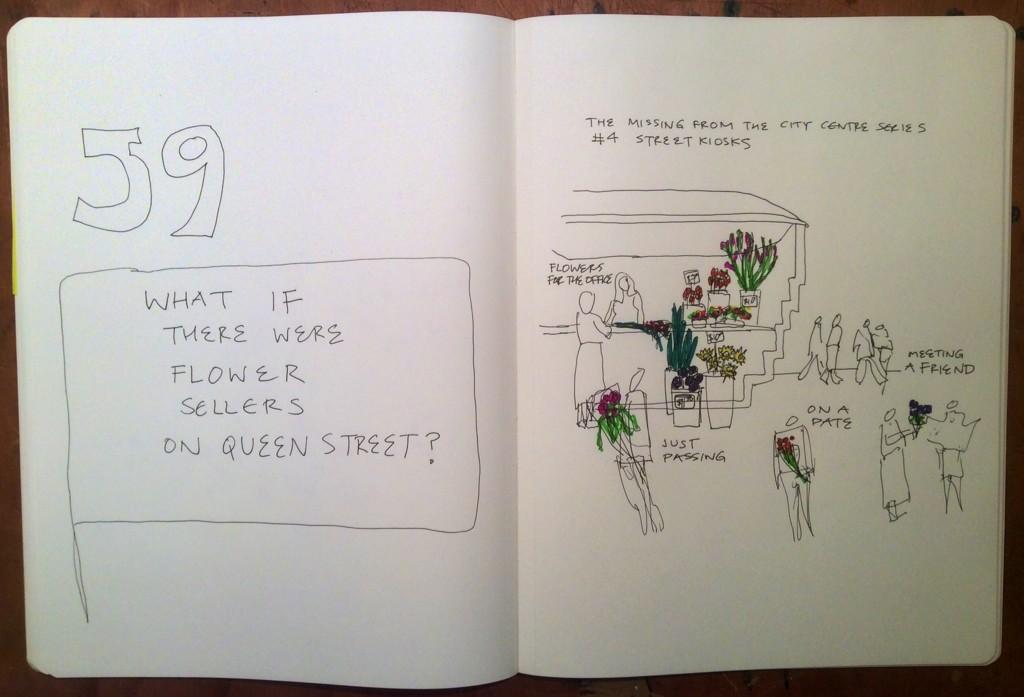 59
WHAT IF
THERE WERE
FLOWER
SELLERS
ON QUEEN STREET?
THE MISSING FROM THE CITY CENTRE SERIES
#4 STREET KIOSKS
FLOWERS
FOR THE OFFICE
MEETING
A FRIEND
ON A
DATE
JUST
PASSING